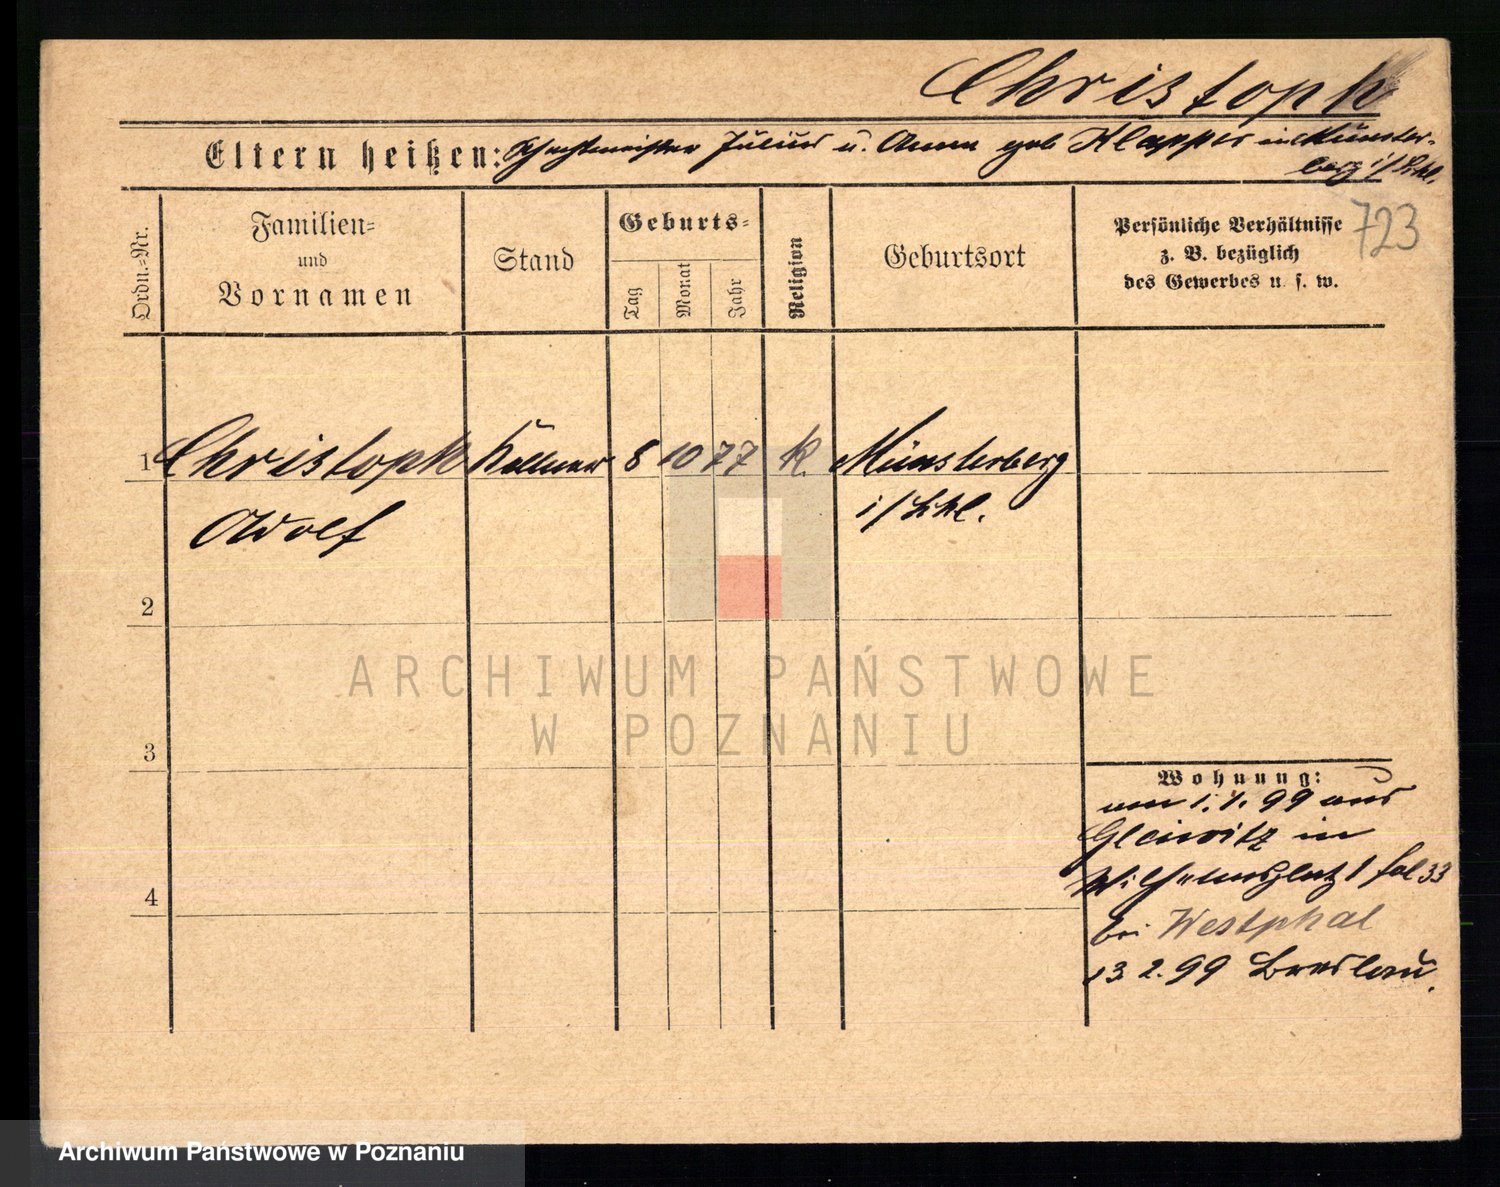 Christoph
Eltern heißen: Schachtmeister Julius u. Anna geb Klapper in Münster-
berg i/Schl.
723
Ordn.-Nr.
Familien-
und
Vornamen
Stand
Geburts-
Tag
Monat
Jahr
Religion
Geburtsort
Persönliche Verhältnisse
z. B. bezüglich
des Gewerbes u. s. w.
1 Christoph Kellner 8 10 77 k. Münsterberg
Adolf i/Schl.
2
ARCHIWUM PAŃSTWOWE
W POZNANIU
3
Wohnung:
am 1. 1. 99 aus
Gleiwitz in
Wilhelmsplatz 1 fol 33
4
bei Westphal
13. 2. 99 Breslau.
Archiwum Państwowe w Poznaniu